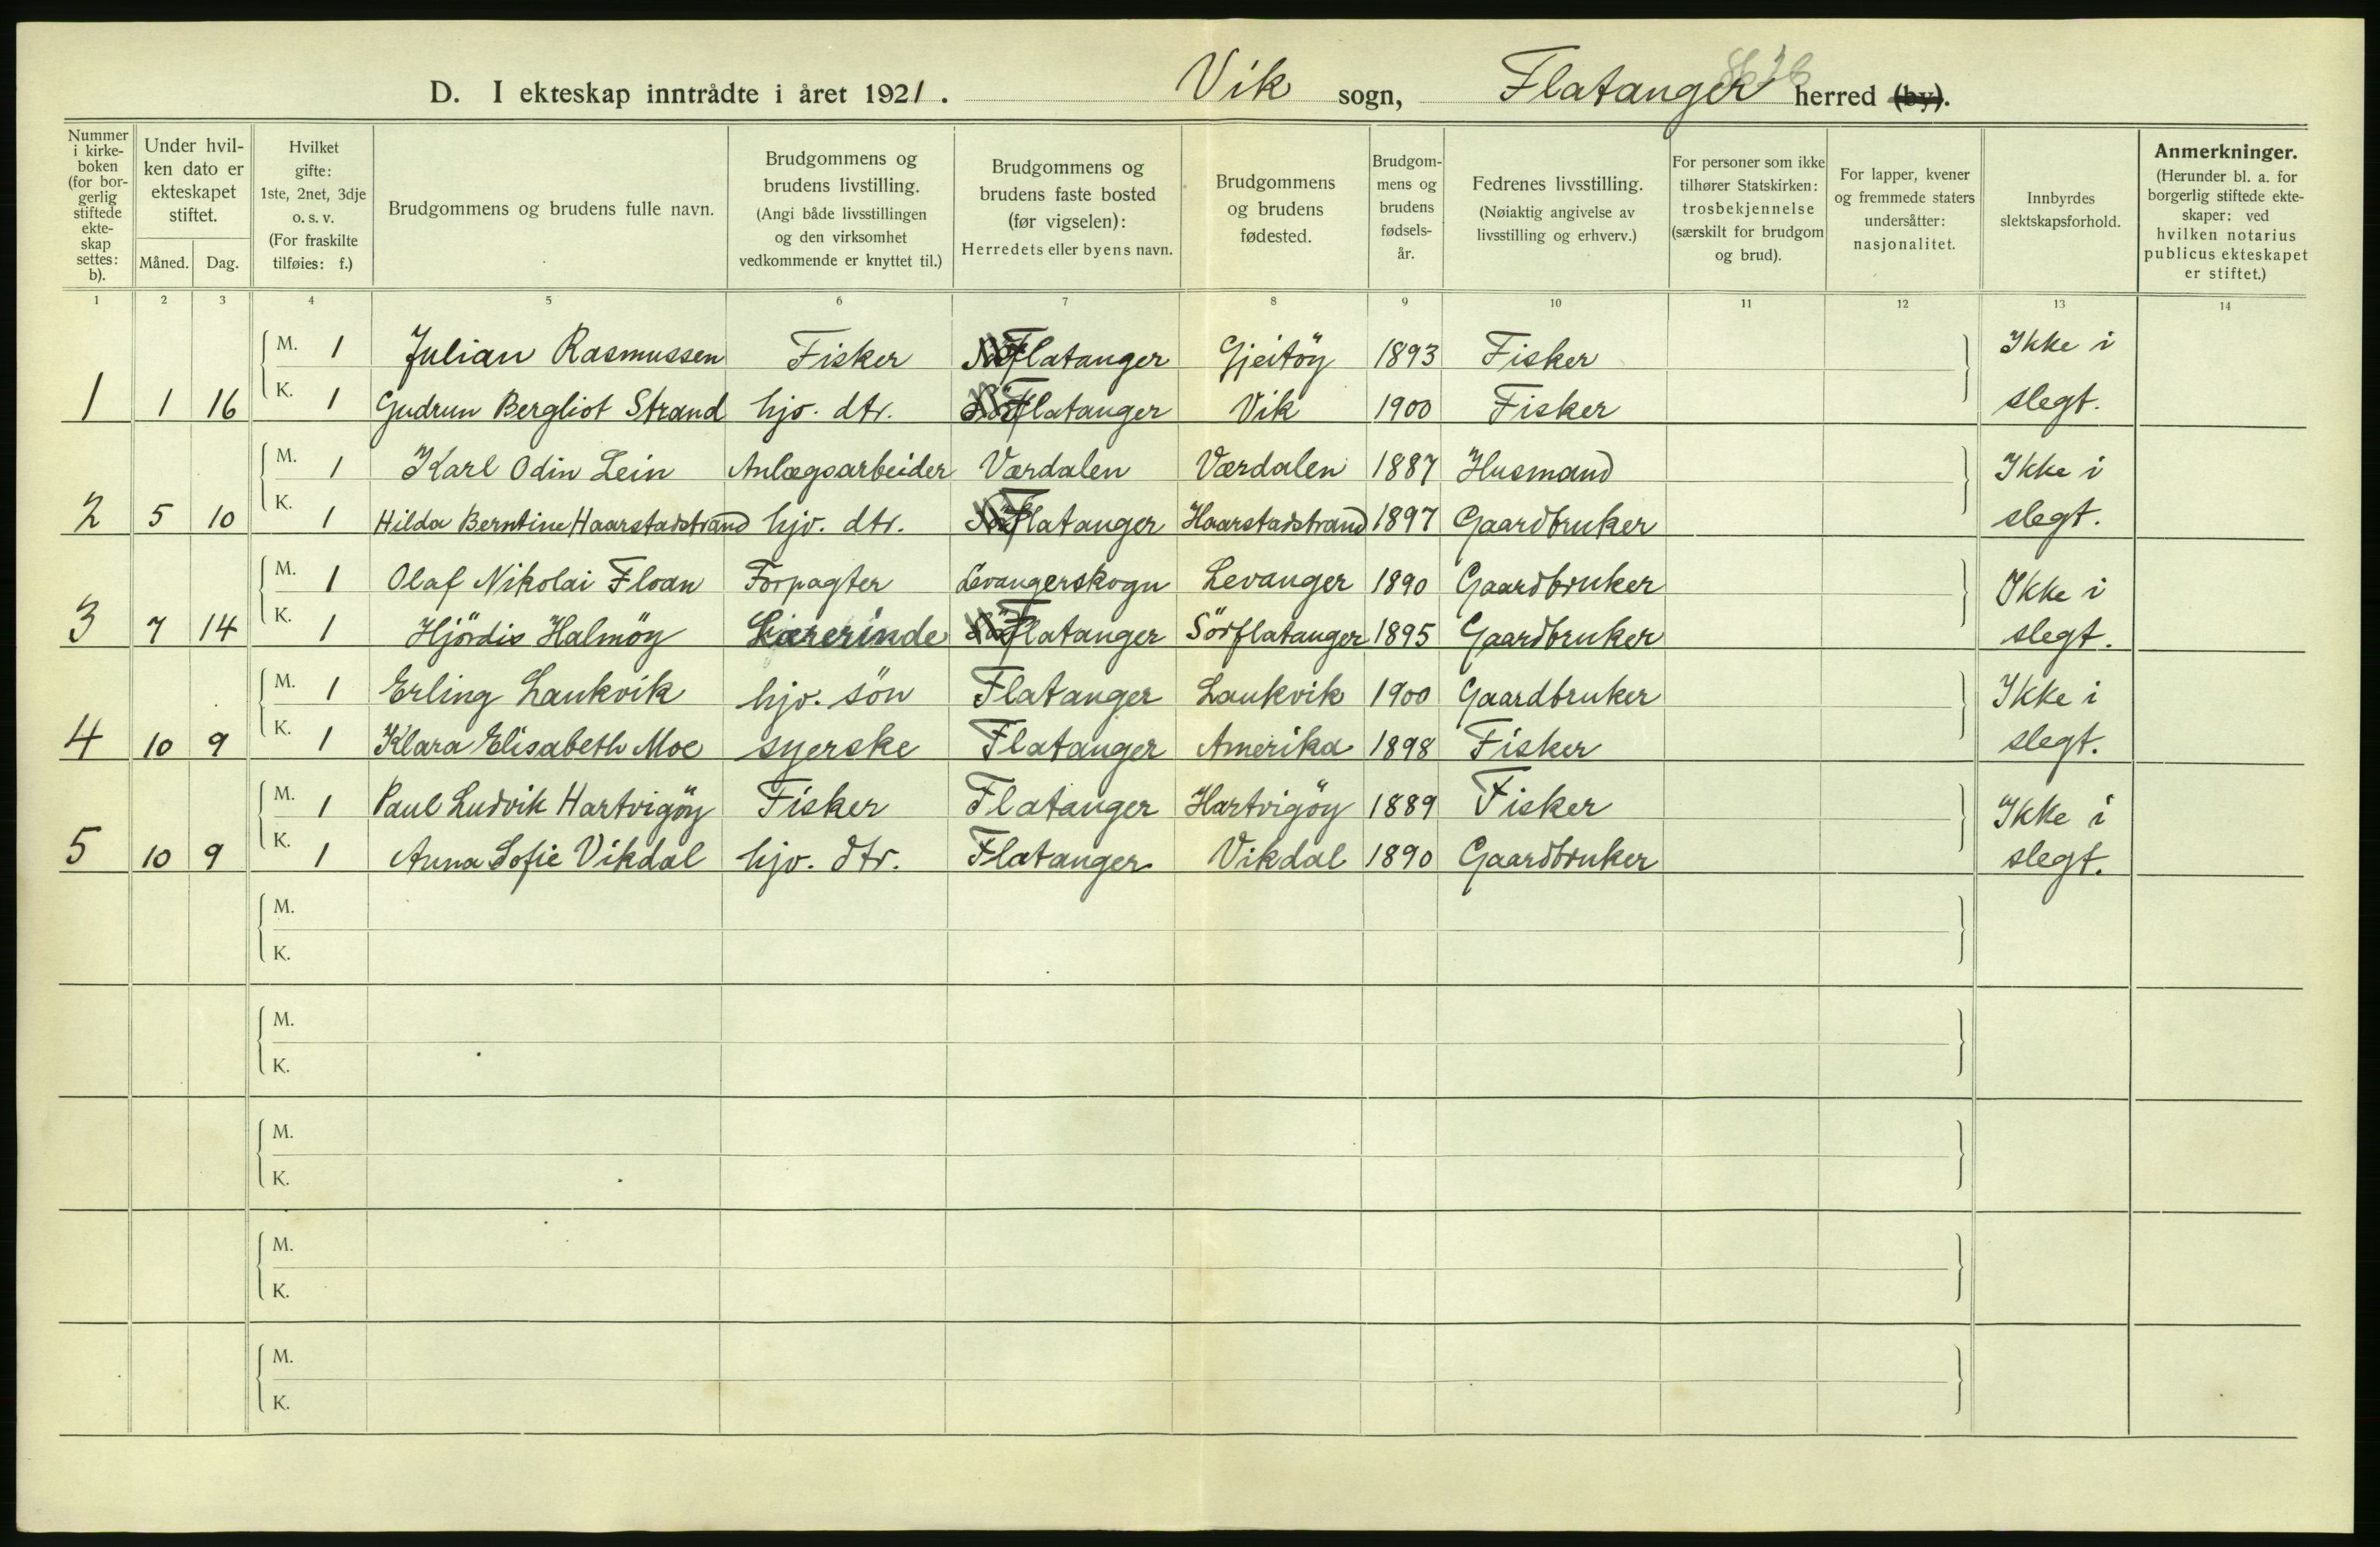 D. I ekteskap inntrådte i året 1921. Vik sogn, Flatanger herred (by).
Nummer i kirkeboken (for borgerlig stiftede ekteskap settes: b).
Under hvilken dato er ekteskapet stiftet.
Måned. Dag.
Hvilket gifte: 1ste, 2net, 3dje o. s. v. (For fraskilte tilføies: f.)
Brudgommens og brudens fulle navn.
Brudgommens og brudens livstilling. (Angi både livsstillingen og den virksomhet vedkommende er knyttet til.)
Brudgommens og brudens faste bosted (før vigselen): Herredets eller byens navn.
Brudgommens og brudens fødested.
Brudgommens og brudens fødselsår.
Fedrenes livsstilling. (Nøiaktig angivelse av livsstilling og erhverv.)
For personer som ikke tilhører Statskirken: trosbekjennelse (særskilt for brudgom og brud).
For lapper, kvener og fremmede staters undersåtter: nasjonalitet.
Innbyrdes slektskapsforhold.
Anmerkninger. (Herunder bl. a. for borgerlig stiftede ekteskaper: ved hvilken notarius publicus ekteskapet er stiftet.)
1 2 3 4 5 6 7 8 9 10 11 12 13 14
M. 1 Julian Rasmussen Fisker Flatanger Gjeitöy 1893 Fisker Ikke i
1 1 16 K. 1 Gudrun Bergliot Strand hjv. dtr. Flatanger Vik 1900 Fisker slegt.
M. 1 Karl Odin Lein Anlægsarbeider Værdalen Værdalen 1887 Husmand Ikke i
2 5 10 K. 1 Hilda Berntine Haarstadstrand hjv. dtr. Flatanger Haarstadstrand 1897 Gaardbruker slegt.
M. 1 Olaf Nikolai Floan Forpagter Levangerskogn Levanger 1890 Gaardbruker Ikke i
3 7 14 K. 1 Hjördis Halmöy Lærerinde Flatanger Sörflatanger 1895 Gaardbruker slegt.
M. 1 Erling Laukvik hjv. sön Flatanger Laukvik 1900 Gaardbruker Ikke i
4 10 9 K. 1 Klara Elisabeth Moe syerske Flatanger Amerika 1898 Fisker slegt.
M. 1 Paul Ludvik Hartvigöy Fisker Flatanger Hartvigöy 1889 Fisker Ikke i
5 10 9 K. 1 Anna Sofie Vikdal hjv. dtr. Flatanger Vikdal 1890 Gaardbruker slegt.
M.
K.
M.
K.
M.
K.
M.
K.
M.
K.